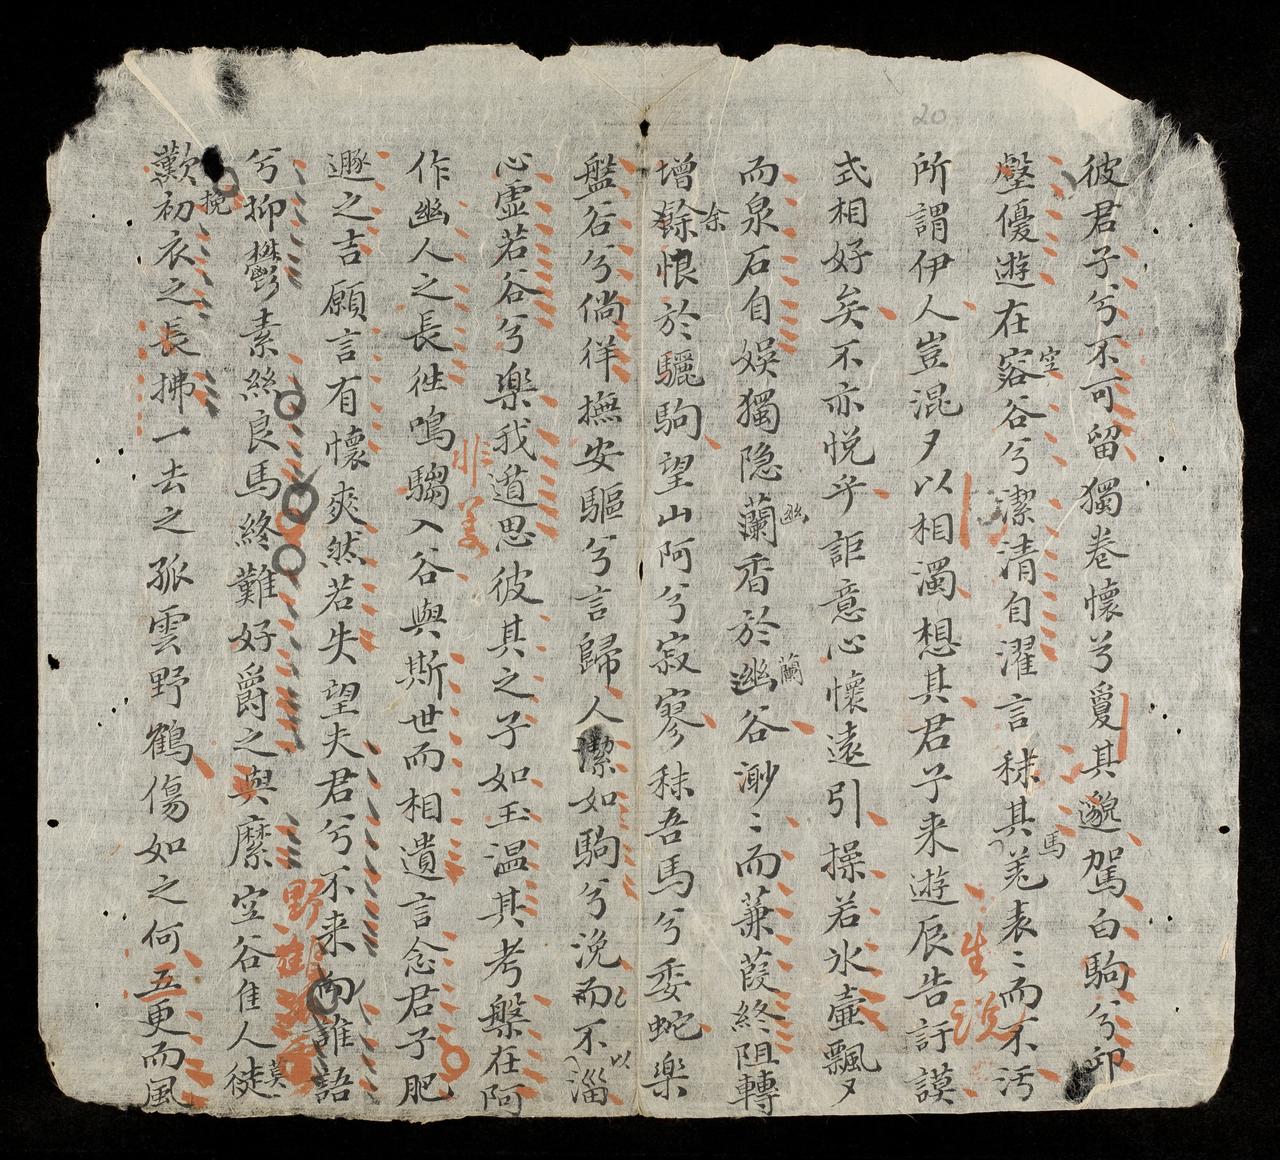 20
彼君子兮不可留獨卷懷兮夐其邈駕白駒兮卬
壑優遊在窓谷兮潔清自濯言秣其羗表〻而不污
空
馬
所謂伊人豈混夕以相濁想其君子来遊辰告訏謨
生
式相好矣不亦悅乎詎意心懷遠引操若氷壷飄夕
而泉石自娛獨隐蘭香於幽谷渺〻而蒹葭終阻轉
幽
蘭
增餘恨於驪駒望山阿兮寂寥秣吾馬兮委蛇樂
余
盤谷兮倘徉撫安驅兮言歸人潔如駒兮浼而不淄
以
心虛若谷兮樂我遁思彼其之子如玉温其考槃在阿
作幽人之長徃鳴騶入谷與斯世而相遺言念君子肥
非
遯之吉願言有懷爽然若失望夫君兮不来向誰語
兮抑欝素絲良馬終難好爵之與縻空谷隹人徒
野
莫
歎初衣之長拂一去之孤雲野鶴傷如之何五更而風
挽